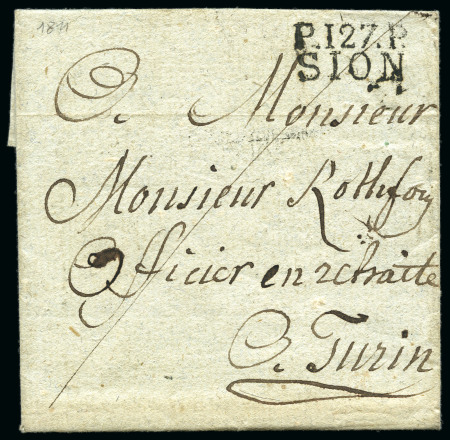 1811
P.127.P.
SION
A Monsieur
Monsieur
Officier en retraite
A Turin